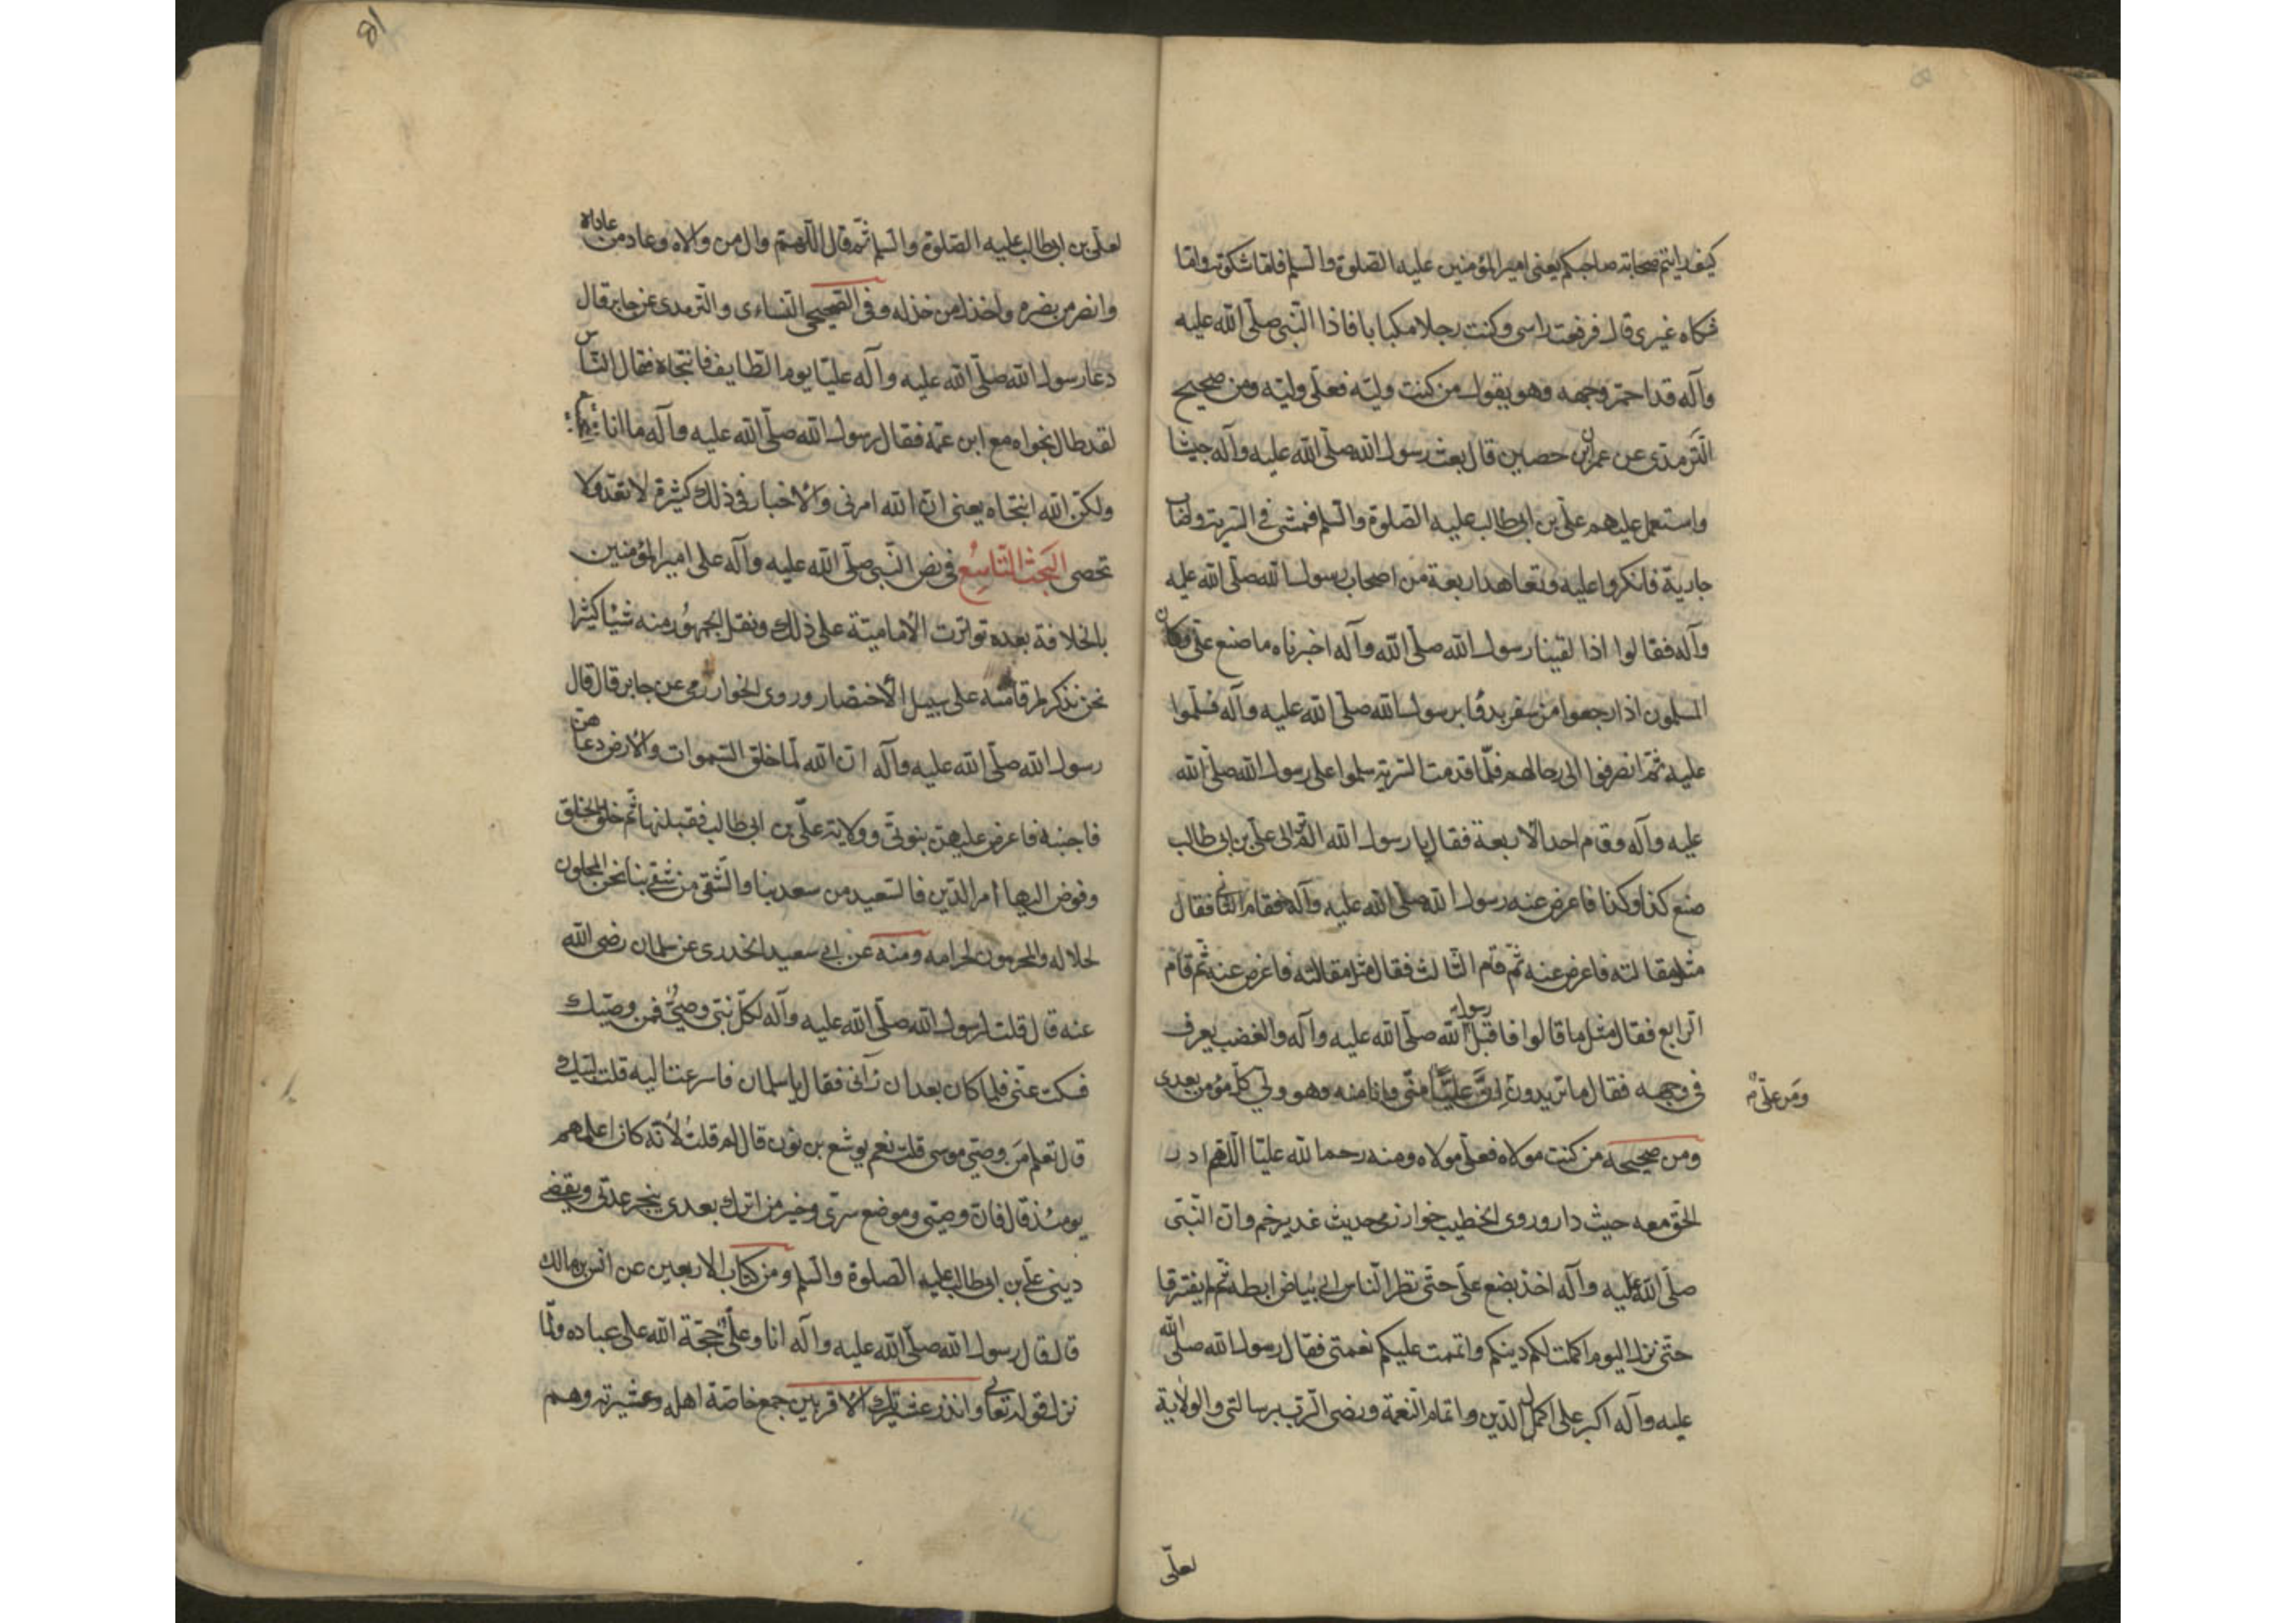 كيف رايتم صحابة صاحبكم يعنى امير المؤمنين عليه الصلوة والسلم فاما شكوته واما
شكاه غيرى قال فرفعت راسى وكنت رجلا مكبابا فاذا النبى صلى الله عليه
وآله قد احمر وجهه وهو يقول من كنت وليه فعلى وليه ومن صحيح
الترمذى عن عمران بن حصين قال بعث رسول الله صلى الله عليه وآله جيشا
واستعمل عليهم على بن ابى طالب عليه الصلوة والسلم فمشى فى السرية واصاب
جارية فانكروا عليه وتعاهد اربعة من اصحاب رسول الله صلى الله عليه
وآله فقالوا اذا لقينا رسول الله صلى الله وآله اخبرناه ما صنع على وكان
المسلمون اذا رجعوا من سفر بدؤا برسول الله صلى الله عليه وآله فسلموا
عليه ثم انصرفوا الى رحالهم فلما قدمت السرية سلموا على رسول الله صلى الله
عليه وآله وقام احد الاربعة فقال يا رسول الله الم تر الى على بن ابى طالب
صنع كذا وكذا فاعرض عنه رسول الله صلى الله عليه وآله فقام الثانى فقال
مثل مقالته فاعرض عنه ثم قام الثالث فقال مثل مقالته فاعرض عنه ثم قام
الرابع فقال مثل ما قالوا فاقبل رسول الله صلى الله عليه وآله والغضب يعرف
فى وجهه فقال ما تريدون من على ان عليا منى وانا منه وهو ولى كل مؤمن بعدى
ومن صحيحه من كنت مولاه فعلى مولاه ومنه رحم الله عليا اللهم ادر
الحق معه حيث دار وروى الخطيب خوارزمى حديث غدير خم وان النبى
صلى الله عليه وآله اخذ بضبع على حتى نظر الناس الى بياض ابطه ثم لم يفترقا
حتى نزل اليوم اكملت لكم دينكم واتممت عليكم نعمتى فقال رسول الله صلى الله
عليه وآله اكبر على اكمال الدين واتمام النعمة ورضى الرب برسالتى والولاية
لعلى
81
لعلى بن ابى طالب عليه الصلوة والسلم ثم قال اللهم وال من والاه وعاد من عاداه
وانصر من نصره واخذل من خذله وفى الصحيح النساءى والترمدى عن جابر قال
دعا رسول الله صلى الله عليه وآله عليا يوم الطايف فانتجاه فقال الناس
لقد طال نجواه مع ابن عمه فقال رسول الله صلى الله عليه وآله ما انا
ولكن الله انتجاه يعنى ان الله امرنى والاخبار فى ذلك كثيرة لا تعد ولا
تحصى البحث التاسع فى نص النبى صلى الله عليه وآله على امير المؤمنين
بالخلافة بعده تواترت الامامية على ذلك ونقل الجمهور منه شيئا كثيرا
نحن نذكر لمرقامنه على سبيل الاختصار وروى الخوارزمى عن جابر قال قال
رسول الله صلى الله عليه وآله ان الله لما خلق السموات والارض دعاهن
فاجبنه فاعرض عليهن بنوتى وولاية على بن ابى طالب فقبلنها ثم خلق الخلق
وفوض الينا امر الدين فالسعيد من سعد بنا والشقى من شقى بنا نحن المحلون
لحلاله والمحرمون لحرامه ومنه عن ابى سعيد الخدرى عن سلمان رضى الله
عنه قال قلت لرسول الله صلى الله عليه وآله لكل نبى وصى فمن وصيك
فسكت عنى فلما كان بعد ان رآنى فقال يا سلمان فاسرعت اليه قلت لبيك
قال تعلم من وصى موسى قلت نعم يوشع بن نون قال لم قلت لانه كان اعلمهم
يومئذ قال فان وصيى وموضع سرى وخير من اترك بعدى ينجز عدتى ويقضى
دينى على بن ابى طالب عليه الصلوة والسلم ومن كتاب الاربعين عن انس بن مالك
قال قال رسول الله صلى الله عليه وآله انا وعلى حجة الله على عباده ولما
نزل قوله تعالى وانذر عشيرتك الاقربين جمع خاصة اهله وعشيرته وهم